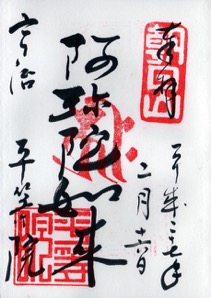 奉拝
平成二十七年
二月十六日
阿弥陀如来
宇治 平等院